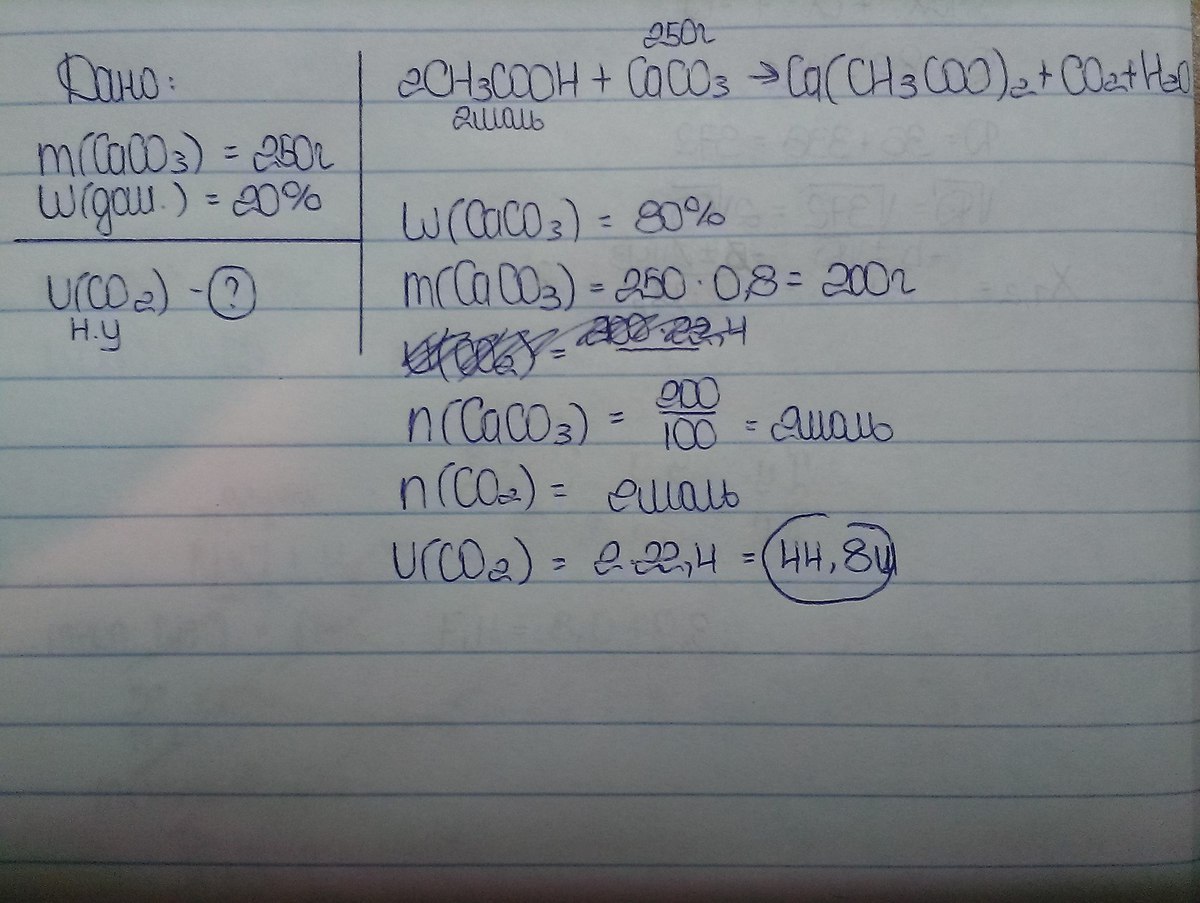 Дано:
m(CaCO3) = 250г
W(дом.) = 20%
V(CO2) - ?
н.у
250г
2CH3COOH + CaCO3 → Ca(CH3COO)2 + CO2 + H2O
2моль
W(CaCO3) = 80%
m(CaCO3) = 250 · 0,8 = 200г
V(CO2) = 200·22,4
n(CaCO3) = 200/100 = 2моль
n(CO2) = 2моль
V(CO2) = 2·22,4 = 44,8л